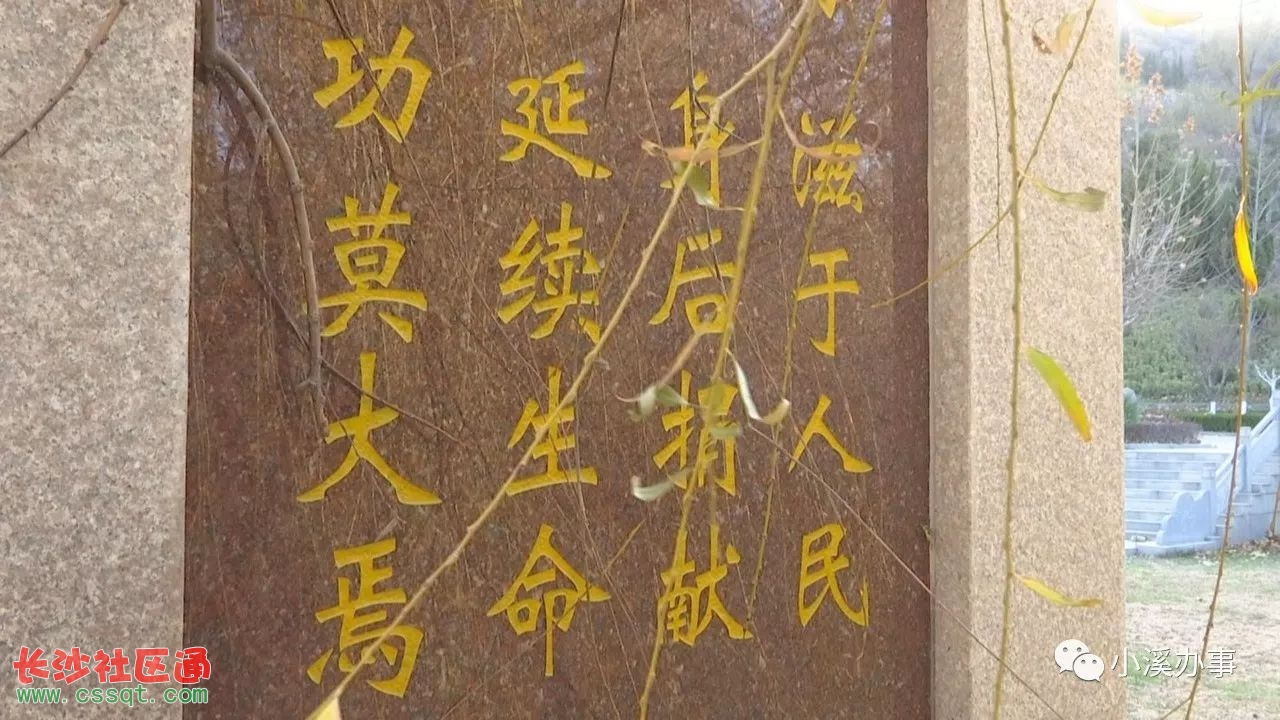 滋于人民
身后捐献
延续生命
功莫大焉
长沙社区通
www.cssqt.com
小溪办事